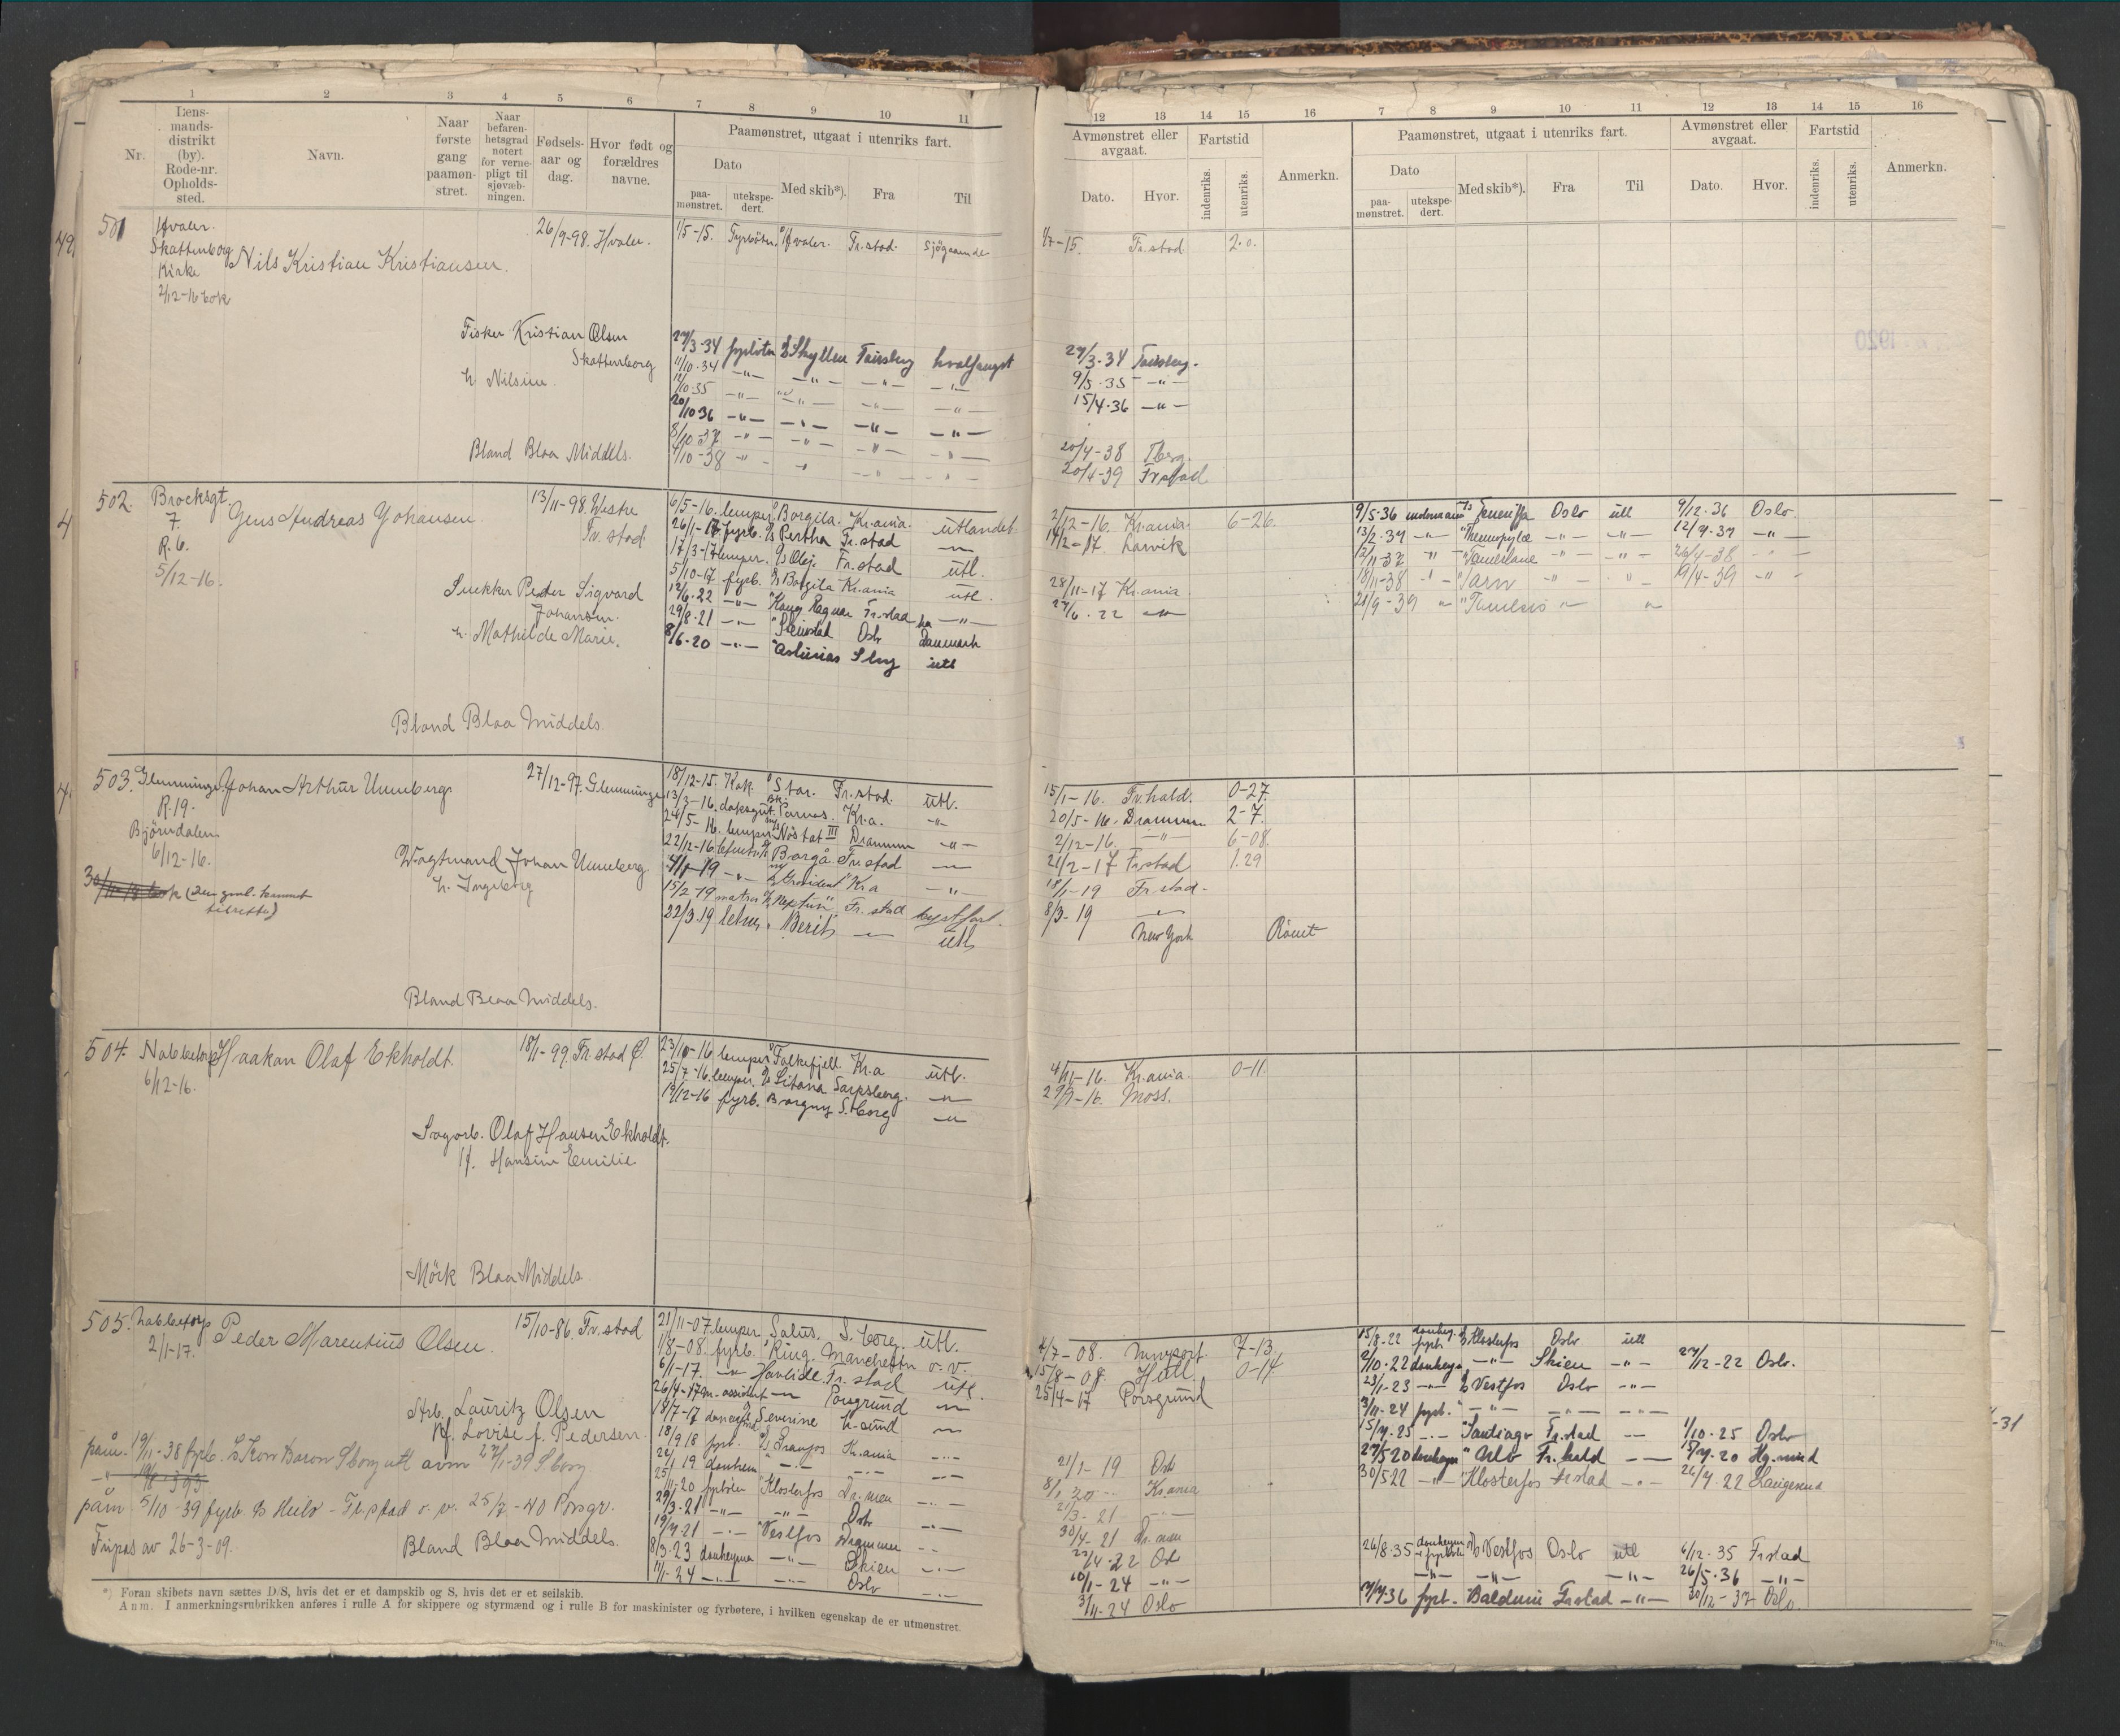 1 2 3 4 5 6 7 8 9 10 11
Nr.
Lens-
mands-
distrikt
(by).
Rode-nr.
Opholds-
sted.
Navn.
Naar
første
gang
paamøn-
stret.
Naar
befaren-
hetsgrad
notert
for verne-
pligt til
sjøvæb-
ningen.
Fødsels-
aar og
dag.
Hvor født og
forældres
navne.
Paamønstret, utgaat i utenriks fart.
Dato
paa-
mønstret.
utekspe-
dert.
Med skib*).
Fra
Til
12 13 14 15 16 7 8 9 10 11 12 13 14 15 16
Avmønstret eller
avgaat.
Fartstid
Dato.
Hvor.
indenriks.
utenriks.
Anmerkn.
Paamønstret, utgaat i utenriks fart.
Dato
paa-
mønstret.
utekspe-
dert.
Med skib*).
Fra
Til
Avmønstret eller
avgaat.
Dato.
Hvor.
Fartstid
indenriks.
utenriks.
Anmerkn.
501 Hvaler.
Skattenborg
Kirke
2/12-16 bok
Nils Kristian Kristiansen.
26/9-98. Hvaler.
Fisker Kristian Olsen
Skattenborg
h. Nilsine.
Bland Blaa Middels.
1/5-15. Fyrbøter Hvaler. Fr.stad. Sjøgaaende 1/7-15. Fr.stad. 2.0.
27/3-34 fyrbøter Skyllen Tønsberg hvalfangst 29/3-34 Tønsberg.
11/10-34 -"- -"- -"- -"- 9/5-35 -"-
12/10-35 -"- -"- -"- -"- 15/4-36 -"-
20/10-36 -"- -"- -"- -"-
8/10-37 -"- -"- " " 20/4-38 Tberg.
4/10-38 " " " " 20/4-39 Frstad
502. Brocksgt.
7.
R.6.
5/12-16.
Jens Andreas Johansen.
13/11-98. Westre
Fr.stad.
Snekker Peder Sigvard
Johansen.
h. Mathilde Marie.
Bland Blaa Middels.
6/5-16. lemper Borgila. Kr.ania. utlandet 2/12-16. Kr.ania. 6-26.
26/1-17. fyrb. Pertha Fr.stad -"- 14/2-17. Larvik
17/3-17 lemper. Olej. Fr.stad utl.
5/10-17 fyrb. Borgila Kr.ania utl. 28/11-17 Kr.ania.
12/6.22 -"- Kong Ragnar Fr.stad -"- 27/6.22 -"-
29/8.21 -"- Steinstad Oslo Danmark
8/6-20 -"- "Asturias Sborg utl
9/5-36 Teneriffa Oslo utl 9/12-36 Oslo.
13/2-37 -"- "Thermopylæ -"- -"- 12/9-37 -"-
12/11-37 -"- "Tamerlane -"- -"- 26/4-38 -"-
18/11-38 -"- "Tarn -"- " 19/4-39 -"-
21/9-39 " " "
503. Glemminge
R.19.
Bjørndalen
6/12-16.
Johan Arthur Unneberg.
27/12-97. Glemminge
Vagtmand Johan Unneberg.
h. Ingeborg
Bland Blaa Middels.
18/12-15. Kok. Star. Fr.stad. utl. 15/1-16. Fr.hald. 0-27.
13/3-16. daksgut. Parnas. Kr.a. -"- 20/5-16. Drammen 2-7.
24/5-16. lemper Nostat III Drammen -"- 2/12-16. -"- 6-08.
22/12-16 Borgå Fr.stad -"- 21/2-17 Frstad 1.29
4/1-19 -"- "President" Kr.a -"- 18/1-19 Fr.stad.
15/2-19 matros "Neptun" Fr.stad kystfart. 8/3-19 -"-
22/3.19 "Berit" -"- utl New York Rømt
504. Nabbetorp
6/12-16.
Haakan Olaf Ekholdt.
18/1-99. Fr.stad Ø.
Sagarb. Olaf Hansen Ekholdt.
H. Hansine Emilie
Mörk Blaa Middels.
23/10-16 lemper Falkefjell Kr.a utl. 4/11-16. Kr.ania. 0-11.
25/7-16. lemper. Sitana Sarpsborg. -"- 29/9-16. Moss.
19/12-16 fyrb. Borgny S.borg -"-
505. Nabbetorp
2/1-17.
Peder Marentius Olsen.
15/10-86. Fr.stad
Arb. Lauritz Olsen
Kf. Lovise f. Pedersen.
paam. 19/11-38 fyrb. Kron Baron Sborg utl avm 27/1-39 Sborg
påm 5/10-39 fyrb D/s Heilo - Fr.stad o.v. 25/7-40 Porsgr.
Fripas av 26-3-09.
Bland Blaa Middels.
21/11-07 lemper Salus. S.borg. utl. 4/7-08. Newport. 7-13.
1/8-08. fyrb. Ring. Manchester o.v. 15/8-08. Hull. 0-14.
6/1-17. -"- Havlide. Fr.stad utl. 25/4-17 Porsgrund
26/4-17 assistent -"- Porsgrund -"-
18/7-17 Severine -"-
18/9.18 fyrb. Granfos Kr.ania -"- 21/1-19 Oslo
24/1.19 donkeym -"- -"- -"- 8/1.20 Kr.ania
25/11-20 fyrbøter "Klosterfos Dr.men -"- 21/3-21 -"-
29/3-21 -"- -"- Oslo -"- 30/4-21 Dr.men
19/4.21 -"- "Vestfos Drammen -"- 22/4.22 Oslo
8/3.23 donkeyma -"- Skien -"- 10/1-24 -"-
11/1-24 -"- -"- Oslo -"- 3/11-24 Oslo
15/8-22 Klosterfos Oslo utl
2/10.22 donkeyma -"- Skien -"- 27/12-22 Oslo.
23/1-23 -"- Vestfos Oslo -"-
3/11-24 fyrb. " -"- -"- -"-
15/4-25 -"- "Santiago Fr.stad -"- 1/10-25 Oslo
27/5 20 donkeym " Oslo Fr.hald -"- 15/4-20
30/5 22 -"- "Klosterfos Frstad -"- 26/7.22 Langesund
26/8.35 Vestfos Oslo utl 6/12.35 Frstad
-"- -"- 26/5.36 -"-
fyrb. "Balduin Frstad -"- 30/12-37 Oslo
*) Foran skibets navn sættes D/S, hvis det er et dampskib og S, hvis det er et seilskib.
Anm. I anmerkningsrubrikken anføres i rulle A for skippere og styrmænd og i rulle B for maskinister og fyrbøtere, i hvilken egenskap de er utmønstret.